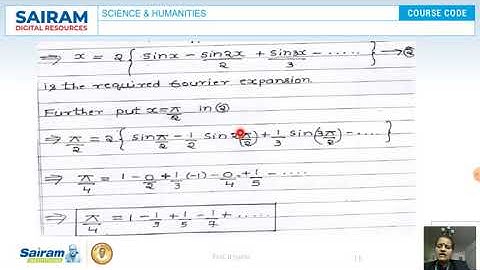 SAIRAM
DIGITAL RESOURCES
SCIENCE & HUMANITIES
COURSE CODE
⇒ x = 2 { sinx - sin2x/2 + sin3x/3 - ..... } → ②
is the required Fourier expansion.
Further put x = π/2 in ②
⇒ π/2 = 2 { sin π/2 - 1/2 sin 2(π/2) + 1/3 sin (3π/2) - .... }
⇒ π/4 = 1 - 0/2 + 1/3 (-1) - 0/4 + 1/5 - ....
⇒ π/4 = 1 - 1/3 + 1/5 - 1/7 + .....
Sairam